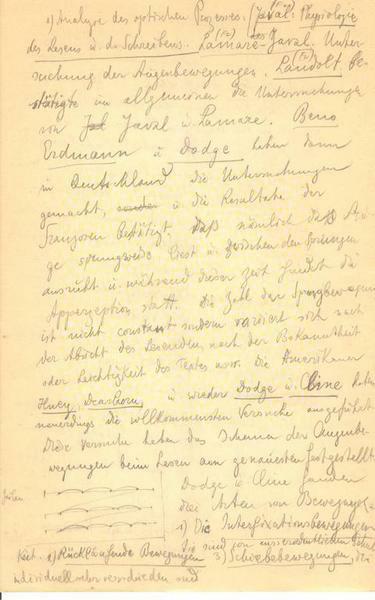 1) Analyse des optischen Prozesses. (Javal: Physiologie
des Lesens u. des Schreibens. Lamare-Javal. Unter-
suchung der Augenbewegungen. Landolt be-
stätigte im allgemeinen die Untersuchunge
von Javal u. Lamare. Beno
Erdmann u Dodge haben dann
in Deutschland die Untersuchungen
gemacht, u die Resultate der
Franzosen bestätigt. Daß nämlich das Au-
ge sprungweise liest u. zwischen den Sprüngen
ausruht u während dieser Zeit findet die
Apperzeption statt. Die Zahl der Sprungbewegung
ist nicht constant sondern variiert sich nach
der Absicht des Lesenden, nach der Bekanntheit
oder Leichtigkeit des Textes usw. Die Amerikaner
Huey, Dearborn, u wieder Dodge u. Cline haben
neuerdings die vollkommensten Versuche ausgeführt
Diese Versuche haben das Schema der Augenbe-
wegungen beim Lesen am genauesten festgestellt
Dodge u Cline fanden
drei Arten von Bewegungen
1) Die Interfixationsbewegungen
Sie sind von ausserordentlicher Schnel
keit. 2) Rückläufende Bewegungen 3) Schiebebewegungen, die
individuell sehr verschieden sind